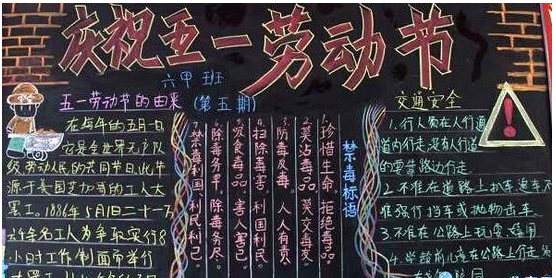 庆祝五一劳动节
六甲班
(第五期)
五一劳动节的由来
在每年的五月一日
它是全世界无产阶
级劳动人民的共同节日,此节
源于美国芝加哥的工人大
罢工。1886年5月1日二十一万
6千余名工人为争取实行8
小时工作制而举行
禁毒标语
1.珍惜生命 拒绝毒品。
2.莫沾毒品 莫交毒友。
3.防毒反毒 人人有责
4.扫除毒害 利国利民
5.吸食毒品。害人害己。
6.除毒务早,除毒务尽。
禁毒利国,利民利己。
交通安全
1.行人须在人行道
道内行走,没有人行道
的要靠路边行走。
2.不准在道路上扒车、追车
准强行挡车或抛物击车。
3.不准在公路上玩耍、嬉闹
4.学龄前儿童在公路上行走